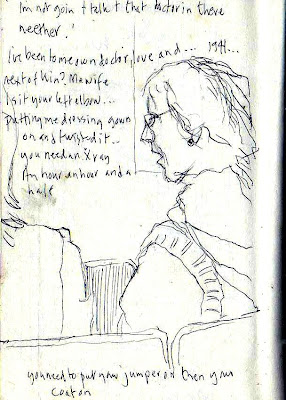 I'm not goin t talk t that doctor in there
neether.'
I've been to me own doctor, love and... 1941...
next of kin? Me wife
is it your left elbow...
putting me dressing gown
on and twisted it..
you need an X ray
An hour an hour and a
half
you need to put your jumper on then your
coat on